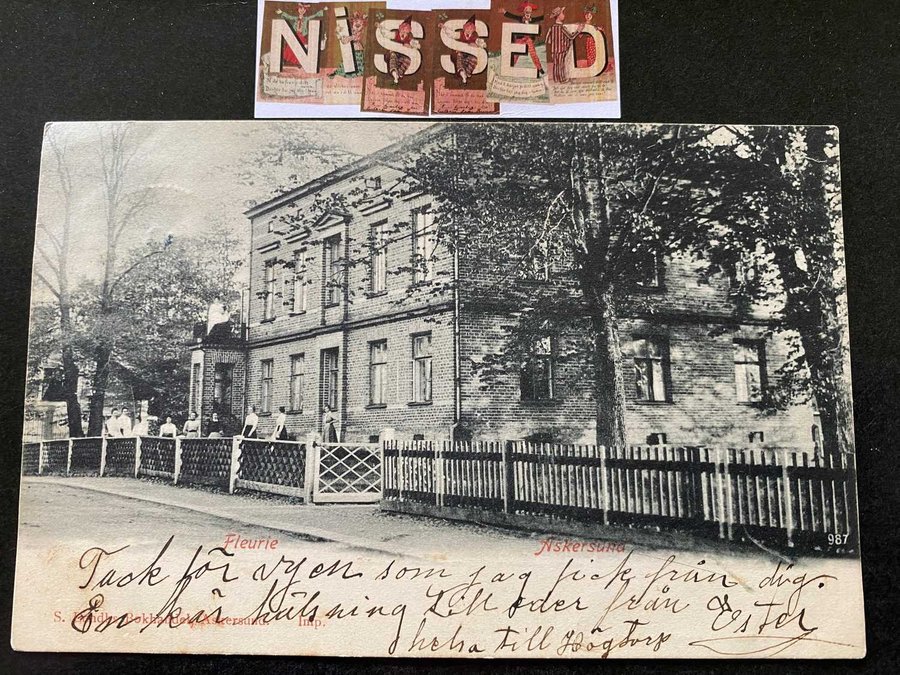 NiSSED
Fleurie Askersund
987
Tack för vyen som jag fick från dig.
En kär hälsning till eder från Ester
S. Bokhandel, Askersund. Imp.
helsa till Högtorp